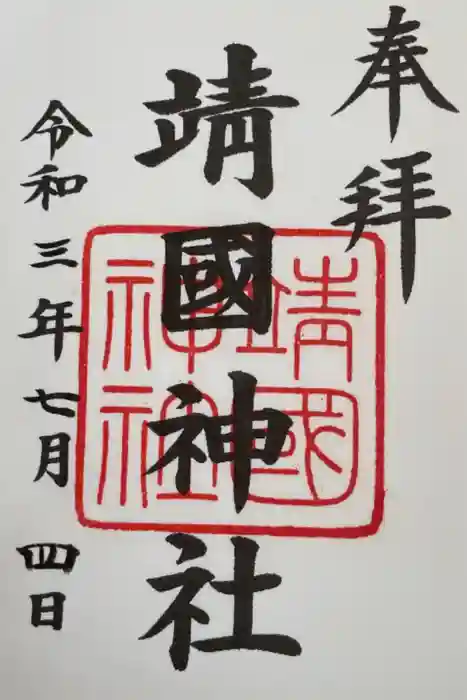 奉拝
靖國神社
靖國
神社
令和三年七月四日